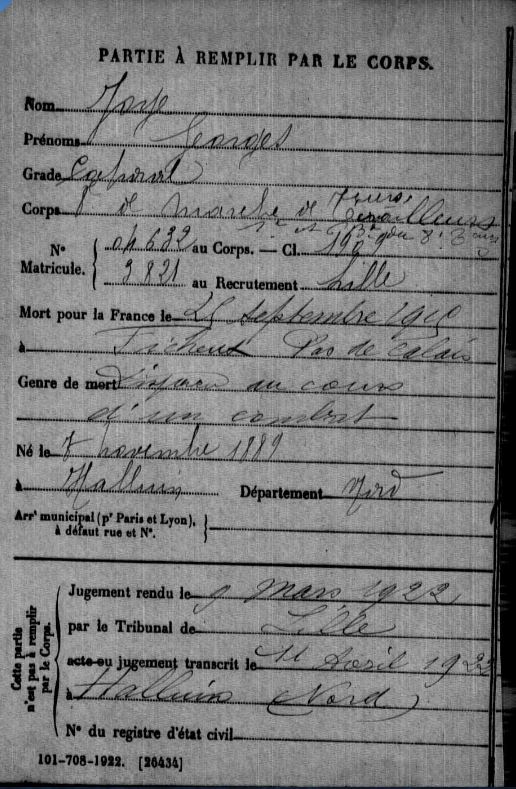 PARTIE À REMPLIR PAR LE CORPS.
Nom
Prénoms Georges
Grade Caporal
Corps de marche de Tirailleurs
N° Matricule. au Corps. — Cl. 1909
3821 au Recrutement Lille
Mort pour la France le 25 septembre 1915
à Ficheux Pas de Calais
Genre de mort Disparu au cours
d'un combat
Né le 7 novembre 1889
à Halluin Département Nord
Arrt municipal (pr Paris et Lyon),
à défaut rue et N°.
Cette partie
n'est pas à remplir
par le Corps.
Jugement rendu le 9 Mars 1922
par le Tribunal de Lille
acte ou jugement transcrit le 11 Avril 1922
à Halluin (Nord)
N° du registre d'état civil
101-708-1922. [26434]